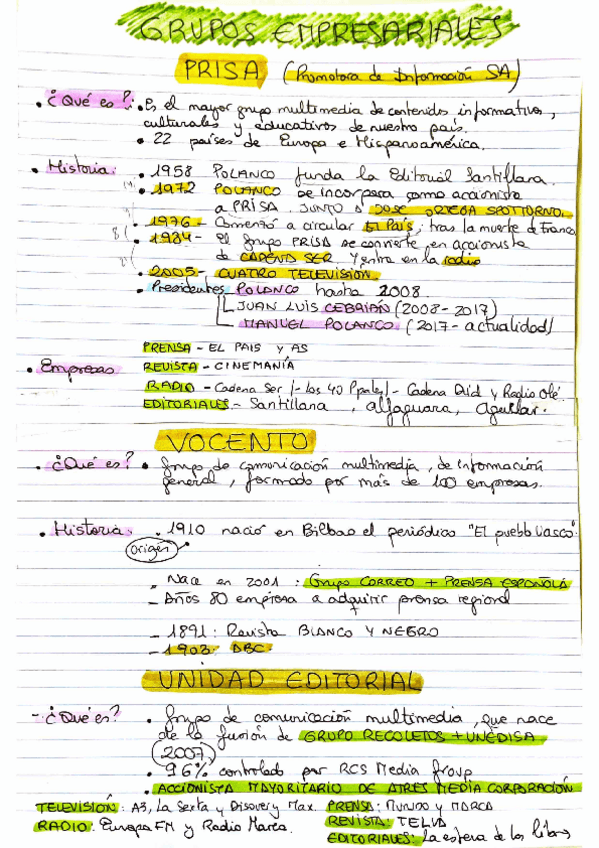 GRUPOS EMPRESARIALES
PRISA (Promotora de Información SA)
• ¿Qué es?: • Es el mayor grupo multimedia de contenidos informativos,
culturales y educativos de nuestro país.
• 22 países de Europa e Hispanoamérica.
• Historia: • 1958 POLANCO funda la Editorial Santillana.
• 1972 POLANCO se incorpora como accionista
a PRISA. JUNTO A JOSE ORTEGA SPOTTORNO.
• 1976 - Comenzó a circular El País, tras la muerte de Franco
• 1984 - El grupo PRISA se convierte en accionista
de CADENA SER. Y entra en la radio
• 2005 - CUATRO TELEVISIÓN.
• Presidentes POLANCO hasta 2008.
JUAN LUIS CEBRIÁN (2008-2017)
MANUEL POLANCO (2017-actualidad)
PRENSA - EL PAIS y AS
• Empresas REVISTA - CINEMANÍA
RADIO - Cadena Ser /- Los 40 Ppales/- Cadena Dial y Radio Olé.
EDITORIALES - Santillana, Alfaguara, Aguilar.
VOCENTO
• ¿Qué es? • Grupo de comunicación multimedia, de información
general, formado por más de 100 empresas.
• Historia: • 1910 nació en Bilbao el periódico "El pueblo vasco"
origen
- Nace en 2001: Grupo CORREO + PRENSA ESPAÑOLA
- Años 80 empresa a adquirir prensa regional
- 1891: Revista BLANCO Y NEGRO
- 1903 ABC.
UNIDAD EDITORIAL
- ¿Qué es? • Grupo de comunicación multimedia, que nace
de la fusión de GRUPO RECOLETOS + UNEDISA
(2007)
• 96% controlado por RCS Media Group
• ACCIONISTA MAYORITARIO DE ATRES MEDIA CORPORACIÓN
TELEVISIÓN: A3, La Sexta y Discovery Max. PRENSA: MUNDO y MARCA
RADIO: Europa FM y Radio Marca. REVISTA: TELVA
EDITORIALES: La esfera de los libros